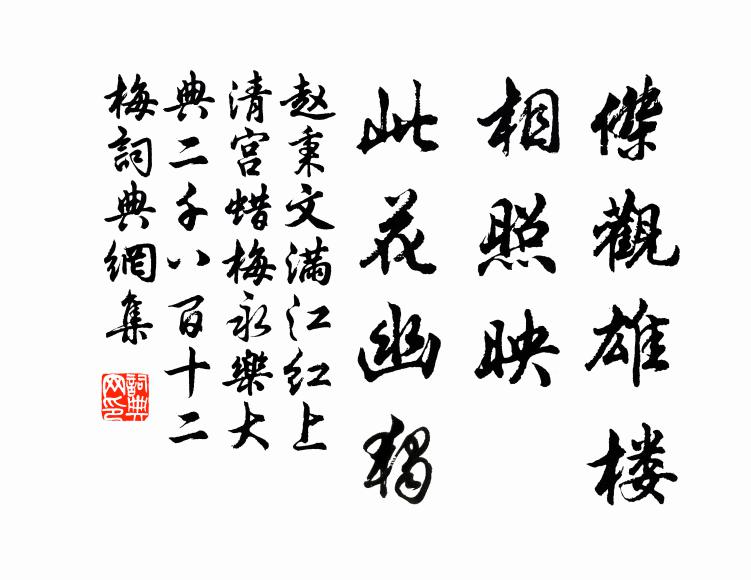 傑觀雄楼
相照映
此花幽獨
赵秉文满江红上
清宫蜡梅永樂大
典二千八百十二
梅詞典網集
詞典网印